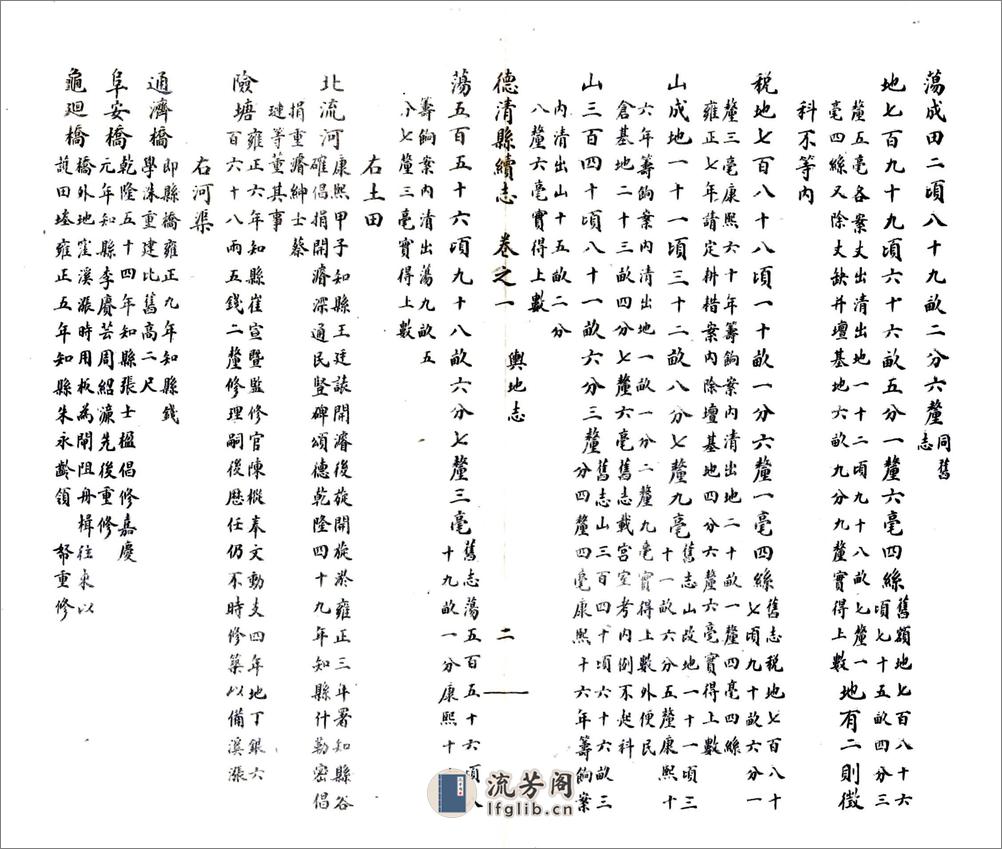 蕩成田二頃八十九畝二分六釐同舊
志
地七百九十九頃六十六畝五分一釐六毫四絲舊額地七百八十六
頃七十五畝四分三
釐五毫各案丈出清出地一十二頃九十八畝七釐一
毫四絲又除丈缺并壇基地六畝九分九釐實得上數地有二則徵
科不等內
稅地七百八十八頃一十畝一分六釐一毫四絲舊志稅地七百八十
七頃九十畝六分一
釐三毫康熙六十年籌餉案內清出地二十畝一釐四毫四絲
雍正七年請定耕耤案內除壇基地四分六釐六毫實得上數
山成地一十一頃三十二畝八分七釐九毫舊志山改地一十一頃三
十一畝六分五釐康熙十
六年籌餉案內清出地一畝一分二釐九毫實得上數外便民
倉基地二十三畝四分七釐六毫舊志載宮室考內例不起科
山三百四十頃八十一畝六分三釐舊志山三百四十頃六十六畝三
分四釐四毫康熙十六年籌餉案
內清出山十五畝二分
八釐六毫實得上數
德清縣續志 卷之一 輿地志 二
蕩五百五十六頃九十八畝六分七釐三毫舊志蕩五百五十六頃八
十九畝一分康熙十
籌餉案內清出蕩九畝五
分七釐三毫實得上數
右土田
北流河康熙甲子知縣王廷諆開濬後旋開旋淤雍正三年署知縣谷
確倡捐開濬深通民豎碑頌德乾隆四十九年知縣什勒密倡
捐重濬紳士蔡
璉等董其事
險塘雍正六年知縣崔宣暨監修官陳樅奉文動支四年地丁銀六
百六十八兩五錢二釐修理嗣後歷任仍不時修築以備溪漲
右河渠
通濟橋即縣橋雍正九年知縣錢
學洙重建比舊高二尺
阜安橋乾隆五十四年知縣張士楹倡修嘉慶
元年知縣李賡芸周紹濂先後重修
龜廻橋橋外地窪溪漲時用板為閘阻舟楫往來以
護田塍雍正五年知縣朱永齡領 帑重修
流芳阁
lfglib.cn